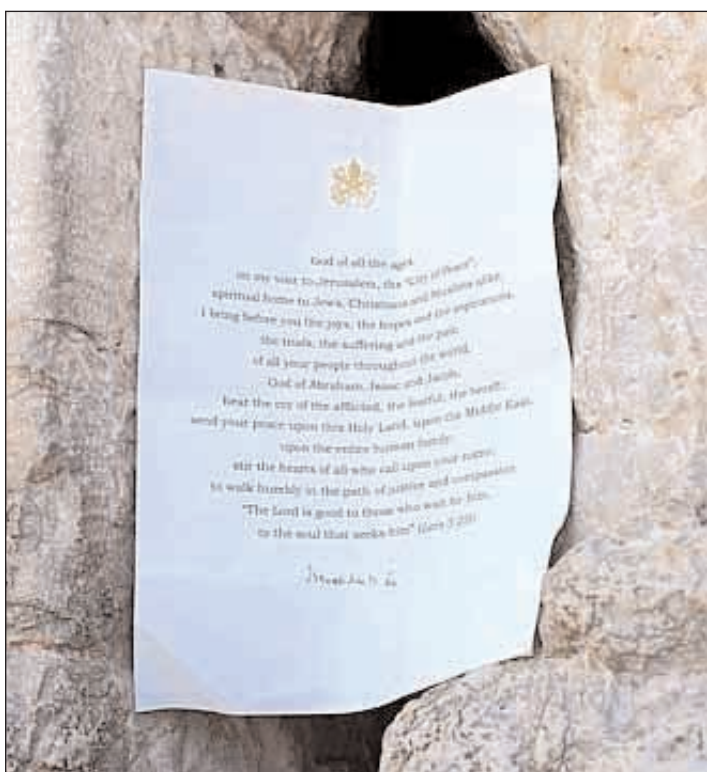 God of all the ages,
on my visit to Jerusalem, the "City of Peace",
spiritual home to Jews, Christians and Muslims alike,
I bring before you the joys, the hopes and the aspirations,
the trials, the suffering and the pain
of all your people throughout the world.
God of Abraham, Isaac and Jacob,
hear the cry of the afflicted, the fearful, the bereft;
send your peace upon this Holy Land, upon the Middle East,
upon the entire human family;
stir the hearts of all who call upon your name,
to walk humbly in the path of justice and compassion.
"The Lord is good to those who wait for him,
to the soul that seeks him" (Lam 3:25)!